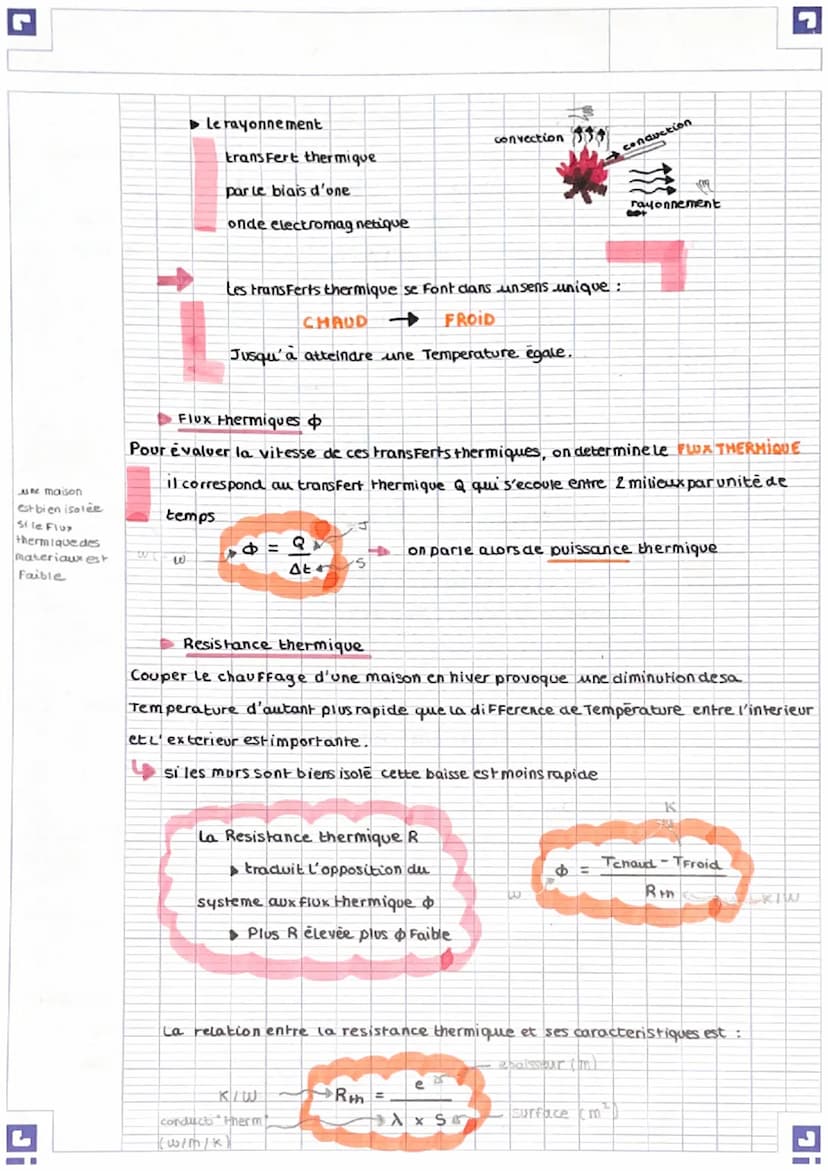 ▸ le rayonnement
transfert thermique
par le biais d'one
onde electromagnetique
convection
conduction
rayonnement
Les transferts thermique se font dans un sens unique :
CHAUD → FROID
Jusqu'à atteindre une Temperature égale.
▸ Flux thermiques ɸ
Pour évaluer la vitesse de ces transferts thermiques, on determine le FLUX THERMIQUE
il correspond au transfert thermique Q qui s'ecoule entre 2 milieux par unité de
temps
une maison
est bien isolée
si le Flux
thermique des
materiaux est
Faible
W ɸ = Q / Δt J S
→ on parle alors de puissance thermique
▸ Resistance thermique
Couper le chauffage d'une maison en hiver provoque une diminution de sa
Temperature d'autant plus rapide que la difference de Température entre l'interieur
et l'exterieur est importante.
↳ si les murs sont biens isolé cette baisse est moins rapide
La Resistance thermique R
▸ traduit l'opposition du
systeme aux flux thermique ɸ
▸ Plus R élevée plus ɸ Faible
K
W ɸ = Tchaud - TFroid / Rth K/W
La relation entre la resistance thermique et ses caracteristiques est :
epaisseur (m)
K/W → Rth = e / λ x S
surface (m²)
conduct° therm°
(W/m/K)